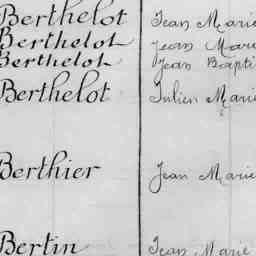 Berthelot Jean Marie
Berthelot Jean Marie
Berthelot Jean Bapti
Berthelot Julien Marie
Berthier Jean Marie
Bertin Jean Marie